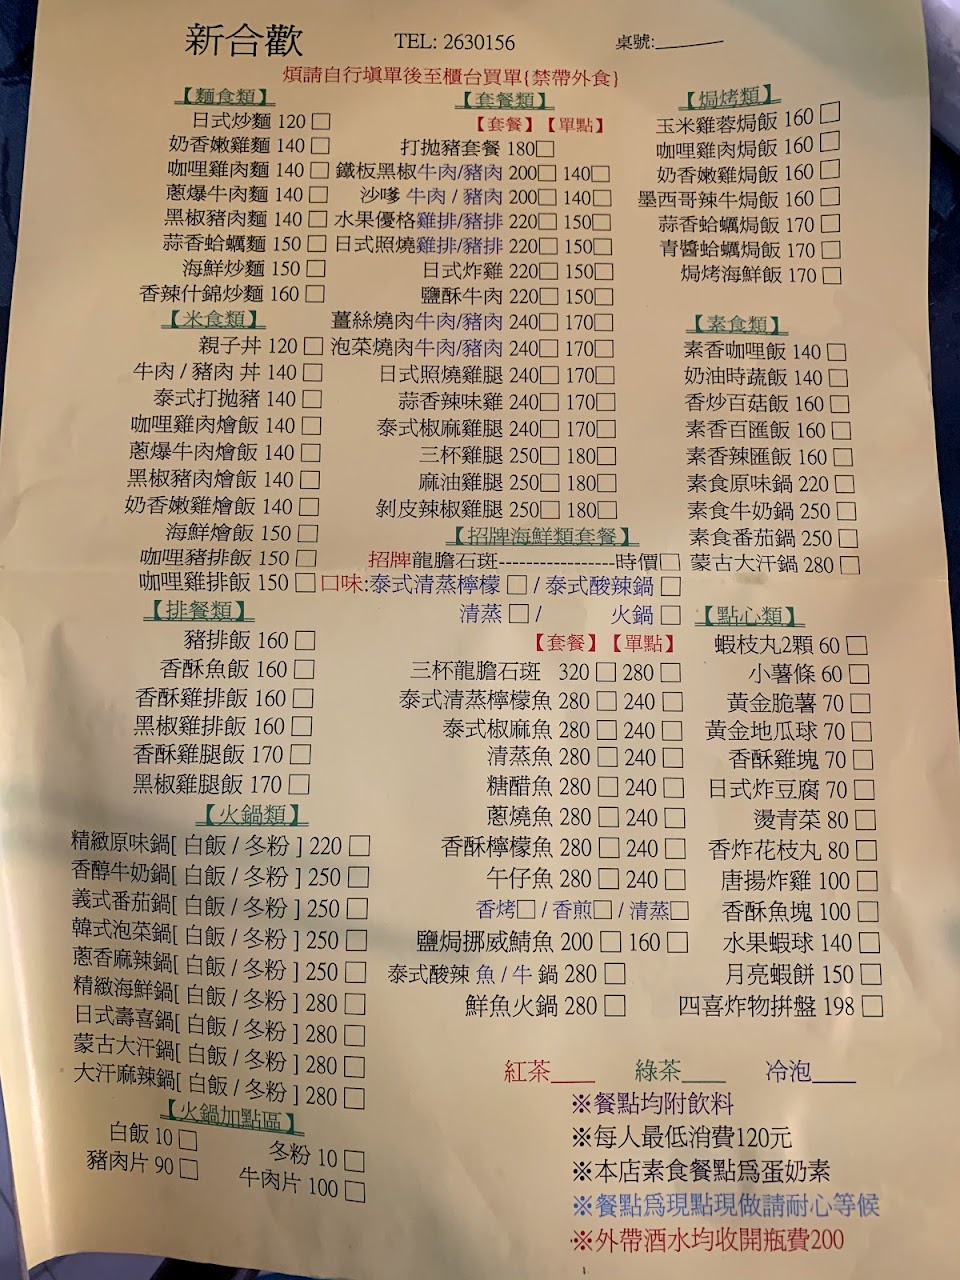 新合歡
TEL: 2630156
桌號:______
煩請自行填單後至櫃台買單{禁帶外食}
【麵食類】
日式炒麵 120 □
奶香嫩雞麵 140 □
咖哩雞肉麵 140 □
蔥爆牛肉麵 140 □
黑椒豬肉麵 140 □
蒜香蛤蠣麵 150 □
海鮮炒麵 150 □
香辣什錦炒麵 160 □
【米食類】
親子丼 120 □
牛肉 / 豬肉 丼 140 □
泰式打拋豬 140 □
咖哩雞肉燴飯 140 □
蔥爆牛肉燴飯 140 □
黑椒豬肉燴飯 140 □
奶香嫩雞燴飯 140 □
海鮮燴飯 150 □
咖哩豬排飯 150 □
咖哩雞排飯 150 □
【排餐類】
豬排飯 160 □
香酥魚飯 160 □
香酥雞排飯 160 □
黑椒雞排飯 160 □
香酥雞腿飯 170 □
黑椒雞腿飯 170 □
【火鍋類】
精緻原味鍋[ 白飯 / 冬粉 ] 220 □
香醇牛奶鍋[ 白飯 / 冬粉 ] 250 □
義式番茄鍋[ 白飯 / 冬粉 ] 250 □
韓式泡菜鍋[ 白飯 / 冬粉 ] 250 □
蔥香麻辣鍋[ 白飯 / 冬粉 ] 250 □
精緻海鮮鍋[ 白飯 / 冬粉 ] 280 □
日式壽喜鍋[ 白飯 / 冬粉 ] 280 □
蒙古大汗鍋[ 白飯 / 冬粉 ] 280 □
大汗麻辣鍋[ 白飯 / 冬粉 ] 280 □
【火鍋加點區】
白飯 10 □ 冬粉 10 □
豬肉片 90 □ 牛肉片 100 □
【套餐類】
【套餐】【單點】
打拋豬套餐 180□
鐵板黑椒牛肉/豬肉 200□ 140□
沙嗲 牛肉 / 豬肉 200□ 140□
水果優格雞排/豬排 220□ 150□
日式照燒雞排/豬排 220□ 150□
日式炸雞 220□ 150□
鹽酥牛肉 220□ 150□
薑絲燒肉牛肉/豬肉 240□ 170□
泡菜燒肉牛肉/豬肉 240□ 170□
日式照燒雞腿 240□ 170□
蒜香辣味雞 240□ 170□
泰式椒麻雞腿 240□ 170□
三杯雞腿 250□ 180□
麻油雞腿 250□ 180□
剝皮辣椒雞腿 250□ 180□
【招牌海鮮類套餐】
招牌龍膽石斑-----------------時價□
口味:泰式清蒸檸檬 □ / 泰式酸辣鍋 □
清蒸 □ / 火鍋 □
【套餐】【單點】
三杯龍膽石斑 320 □ 280 □
泰式清蒸檸檬魚 280 □ 240 □
泰式椒麻魚 280 □ 240 □
清蒸魚 280 □ 240 □
糖醋魚 280 □ 240 □
蔥燒魚 280 □ 240 □
香酥檸檬魚 280 □ 240 □
午仔魚 280 □ 240 □
香烤□ / 香煎□ / 清蒸□
鹽焗挪威鯖魚 200 □ 160 □
泰式酸辣 魚 / 牛 鍋 280 □
鮮魚火鍋 280 □
【焗烤類】
玉米雞蓉焗飯 160 □
咖哩雞肉焗飯 160 □
奶香嫩雞焗飯 160 □
墨西哥辣牛焗飯 160 □
蒜香蛤蠣焗飯 170 □
青醬蛤蠣焗飯 170 □
焗烤海鮮飯 170 □
【素食類】
素香咖哩飯 140 □
奶油時蔬飯 140 □
香炒百菇飯 160 □
素香百匯飯 160 □
素香辣匯飯 160 □
素食原味鍋 220 □
素食牛奶鍋 250 □
素食番茄鍋 250 □
蒙古大汗鍋 280 □
【點心類】
蝦枝丸2顆 60 □
小薯條 60 □
黃金脆薯 70 □
黃金地瓜球 70 □
香酥雞塊 70 □
日式炸豆腐 70 □
燙青菜 80 □
香炸花枝丸 80 □
唐揚炸雞 100 □
香酥魚塊 100 □
水果蝦球 140 □
月亮蝦餅 150 □
四喜炸物拼盤 198 □
紅茶____ 綠茶____ 冷泡____
※餐點均附飲料
※每人最低消費120元
※本店素食餐點為蛋奶素
※餐點為現點現做請耐心等候
※外帶酒水均收開瓶費200